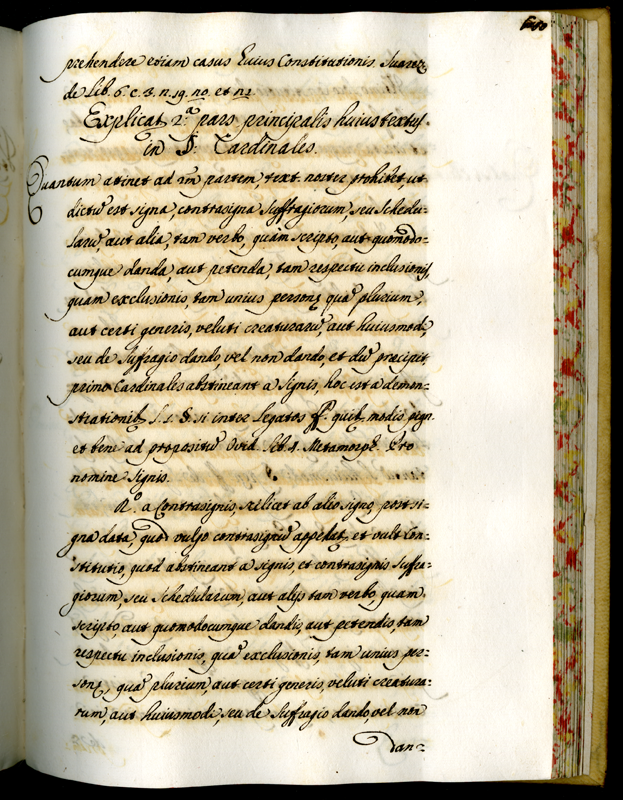 prehendere etiam casus huius Constitutionis. Suarez
de Lib. 6. c. 3. n. 19. no. et n.
Explicat 2.ª pars principalis huius textus
in §. Cardinales.
Quantum atinet ad 2m partem, text. noster prohibet, ut
dictũ est signa, contrasigna suffragiorum, seu schedu-
larũ, aut alia, tam verbo, quam scripto, aut quomodo-
cumque danda, aut petenda, tam respectu inclusionis,
quam exclusionis, tam unius personę quã plurium,
aut certi generis, veluti creaturarũ, aut huiusmodi,
seu de suffragio dando, vel non dando, et dũ precipit
primo Cardinales abstineant a signis, hoc est a demon-
strationib. l. 1. §. si inter legatos ff. quib. modis pign.
et bene ad propositũ Ovid. lib. 4. Metamorph. Pro
nomine signis.
N.º a Contrasignis, scilicet ab alio signo, post si-
gna data, quod vulgo contrasignũ appellat, et vult Con-
stitutio, quod abstineant a signis, et contrasignis suffra-
giorum, seu schedularum, aut alijs tam verbo, quam
scripto aut quomodocunque dandis, aut petendis, tam
respectu inclusionis, quã exclusionis, tam unius per-
sonę, quã plurium, aut certi generis, veluti creatura-
rum, aut huiusmodi, seu de suffragio dando vel non
dan-